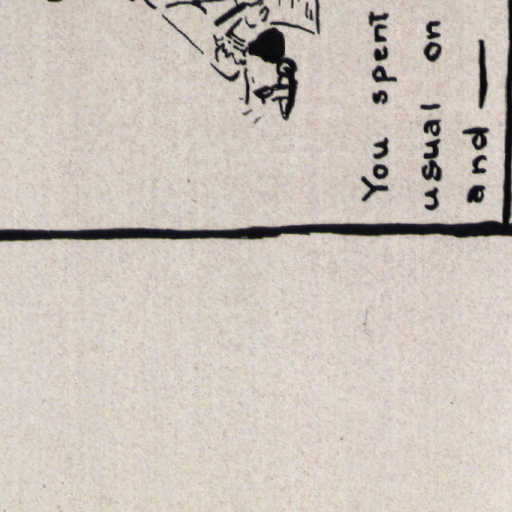 You spent
usual on
and —